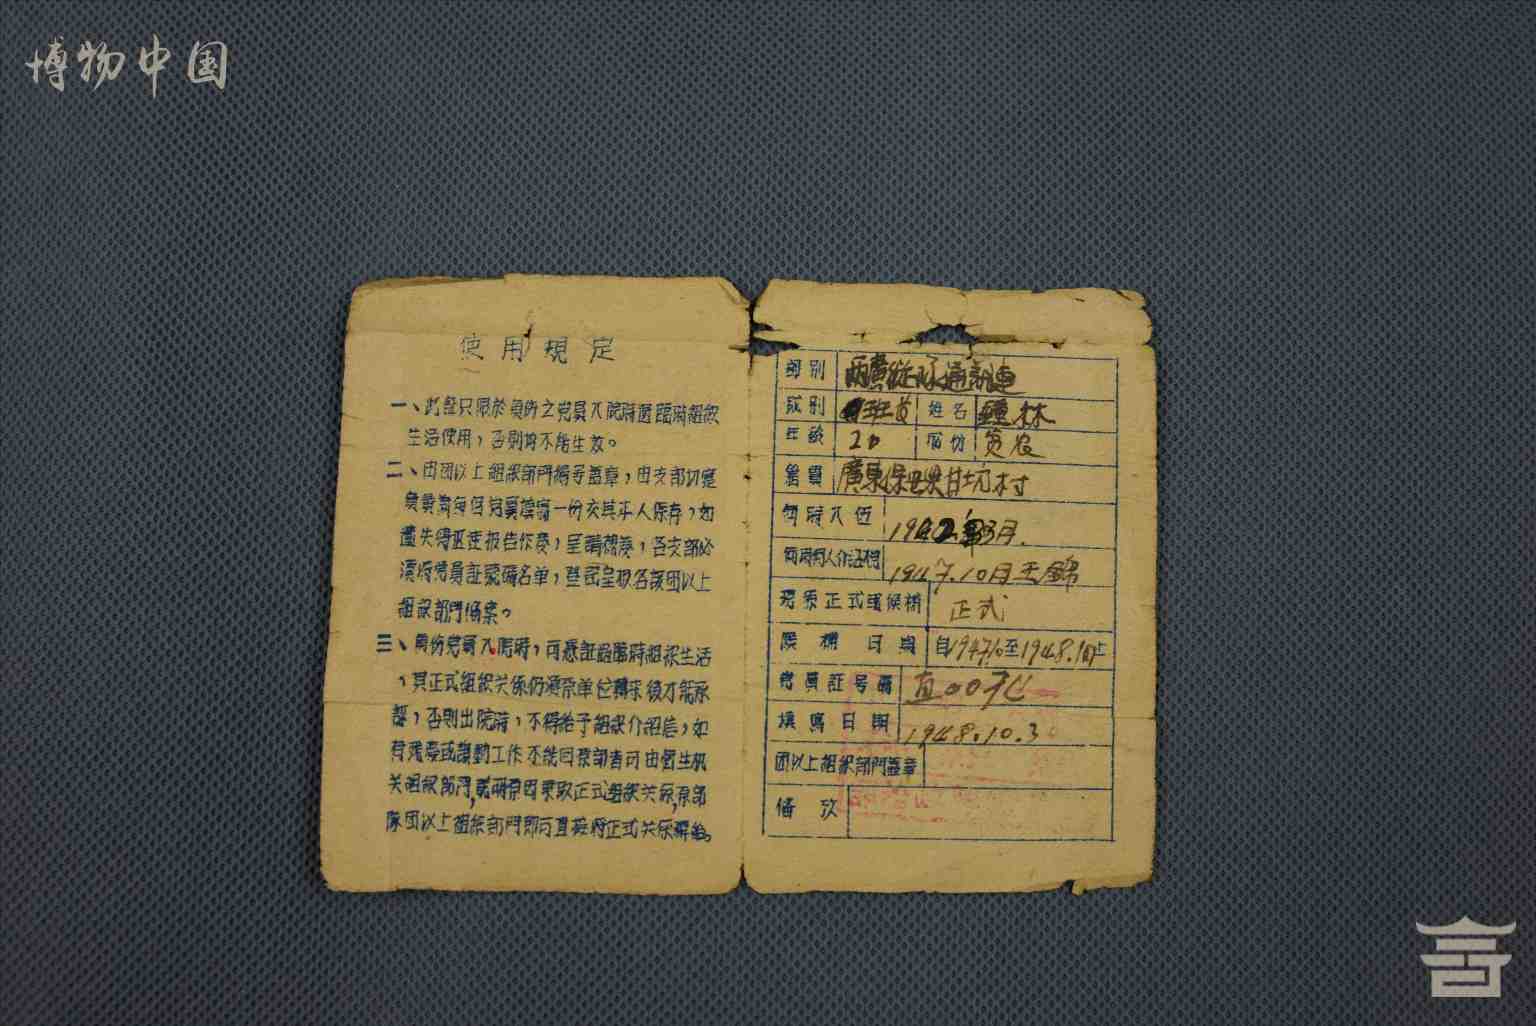 博物中国
使用規定
一、此証只限於負伤之党員入院時過臨時組织
生活使用，否則均不能生效。
二、由团以上組织部門編号蓋章，由支部切實
負責為每個党員填寫一份交其本人保存，如
遺失得迅速报告作废，呈請補發，各支部必
須将党員証號碼名单，登記呈报各該团以上
組织部門備案。
三、負伤党員入院時，可憑証過臨時組织生活
，其正式組织关係仍須原单位轉来後才能承
認，否則出院時，不得給予組织介紹信，如
工作不能回原部者可由衛生机
关組织部門，正式組织关係，原部
隊团以上組织部門即可直接将正式关係轉給。
部别 兩廣縱队通訊連
职别 班员 姓名 鍾林
年齡 20 成份 贫农
籍貫 廣東 甘坑村
何時入伍 1942年3月.
何時何人介绍 1947.10月王錦
現系正式或候補 正式
候補日期 自1947.10至1948.1月止
党員証号碼 直00
填寫日期 1948.10.3
团以上組织部門蓋章
備攷